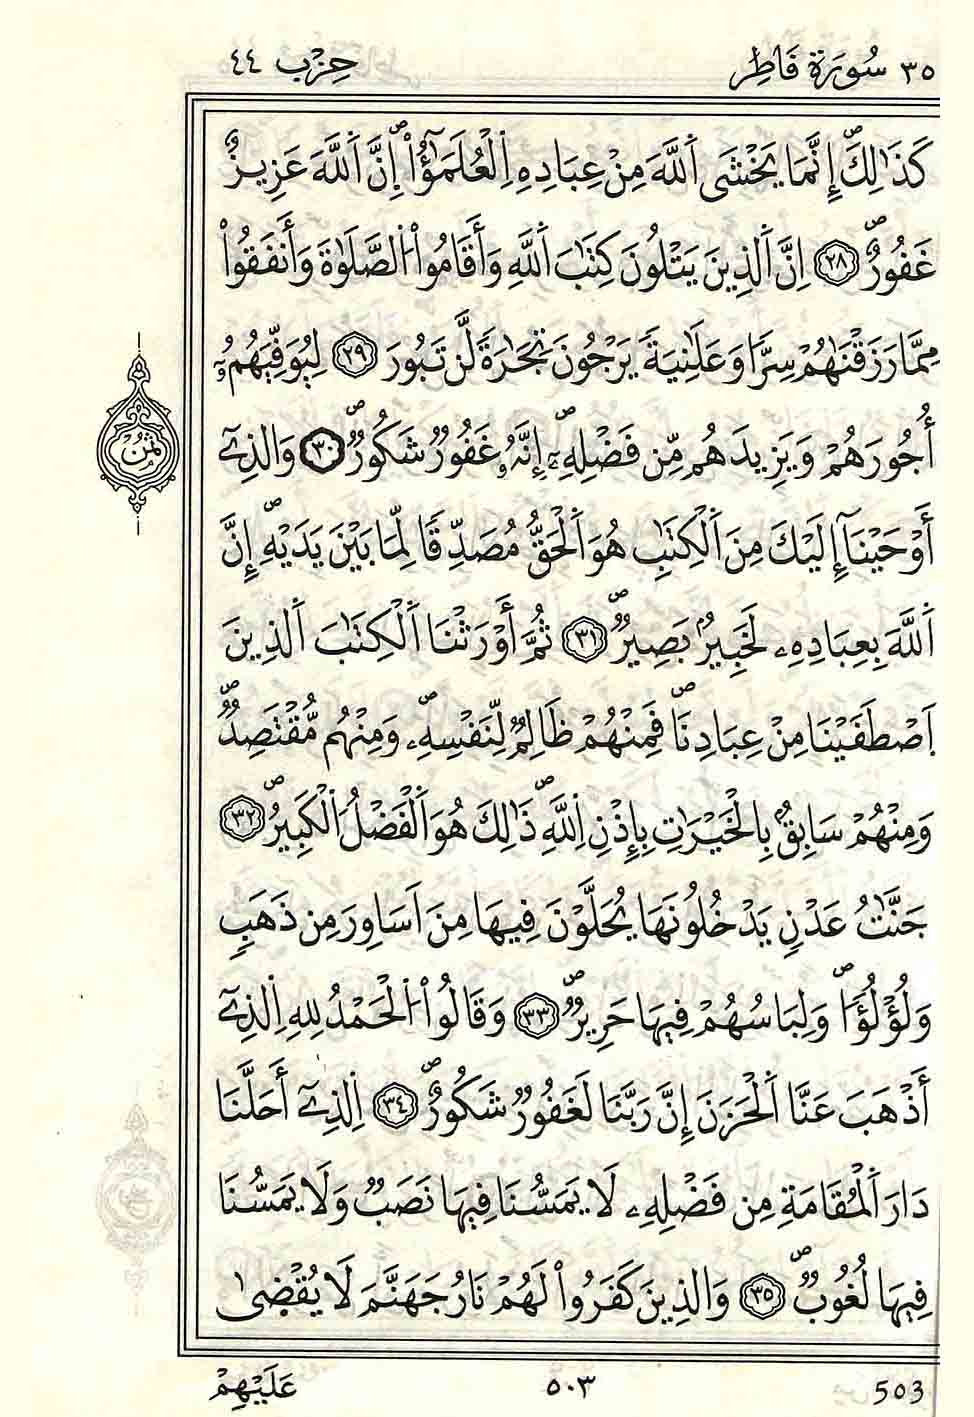 ٣٥ سُورَة فَاطِر حِزْب ٤٤
كَذَٰلِكَۖ إِنَّمَا يَخْشَى اَ۬للَّهَ مِنْ عِبَادِهِ اِ۬لْعُلَمَٰٓؤُاْۖ اِنَّ اَ۬للَّهَ عَزِيزٌ
غَفُورٌۖ ٢٨ اِنَّ اَ۬لذِينَ يَتْلُونَ كِتَٰبَ اَ۬للَّهِ وَأَقَامُواْ اُ۬لصَّلَوٰةَ وَأَنفَقُواْ
مِمَّا رَزَقْنَٰهُمْ سِرّاً وَعَلَٰنِيَةً يَرْجُونَ تِجَٰرَةً لَّن تَبُورَ ٢٩ لِيُوَفِّيَهُمُۥٓ
أُجُورَهُمْ وَيَزِيدَهُم مِّن فَضْلِهِۦٓۖ إِنَّهُۥ غَفُورٌ شَكُورٌۖ ٣٠ وَالذِےٓ
أَوْحَيْنَآ إِلَيْكَ مِنَ اَ۬لْكِتَٰبِ هُوَ اَ۬لْحَقُّ مُصَدِّقاً لِّمَا بَيْنَ يَدَيْهِۖ إِنَّ
اَ۬للَّهَ بِعِبَادِهِۦ لَخَبِيرُۢ بَصِيرٌۖ ٣١ ثُمَّ أَوْرَثْنَا اَ۬لْكِتَٰبَ اَ۬لذِينَ
اَ۪صْطَفَيْنَا مِنْ عِبَادِنَاۖ فَمِنْهُمْ ظَالِمٌ لِّنَفْسِهِۦۖ وَمِنْهُم مُّقْتَصِدٌۖ
وَمِنْهُمْ سَابِقُۢ بِالْخَيْرَٰتِ بِإِذْنِ اِ۬للَّهِۖ ذَٰلِكَ هُوَ اَ۬لْفَضْلُ اُ۬لْكَبِيرُۖ ٣٢
جَنَّٰتُ عَدْنٍ يَدْخُلُونَهَا يُحَلَّوْنَ فِيهَا مِنَ اَسَاوِرَ مِن ذَهَبٍ
وَلُؤْلُؤاًۖ وَلِبَاسُهُمْ فِيهَا حَرِيرٌۖ ٣٣ وَقَالُواْ اُ۬لْحَمْدُ لِلهِ اِ۬لذِےٓ
أَذْهَبَ عَنَّا اَ۬لْحَزَنَ إِنَّ رَبَّنَا لَغَفُورٌ شَكُورٌۖ ٣٤ اِ۬لذِےٓ أَحَلَّنَا
دَارَ اَ۬لْمُقَامَةِ مِن فَضْلِهِۦ لَا يَمَسُّنَا فِيهَا نَصَبٌ وَلَا يَمَسُّنَا
فِيهَا لُغُوبٌۖ ٣٥ وَالذِينَ كَفَرُواْ لَهُمْ نَارُ جَهَنَّمَ لَا يُقْضَىٰ
ثُمُن
503 ٥٠٣ عَلَيْهِمْ